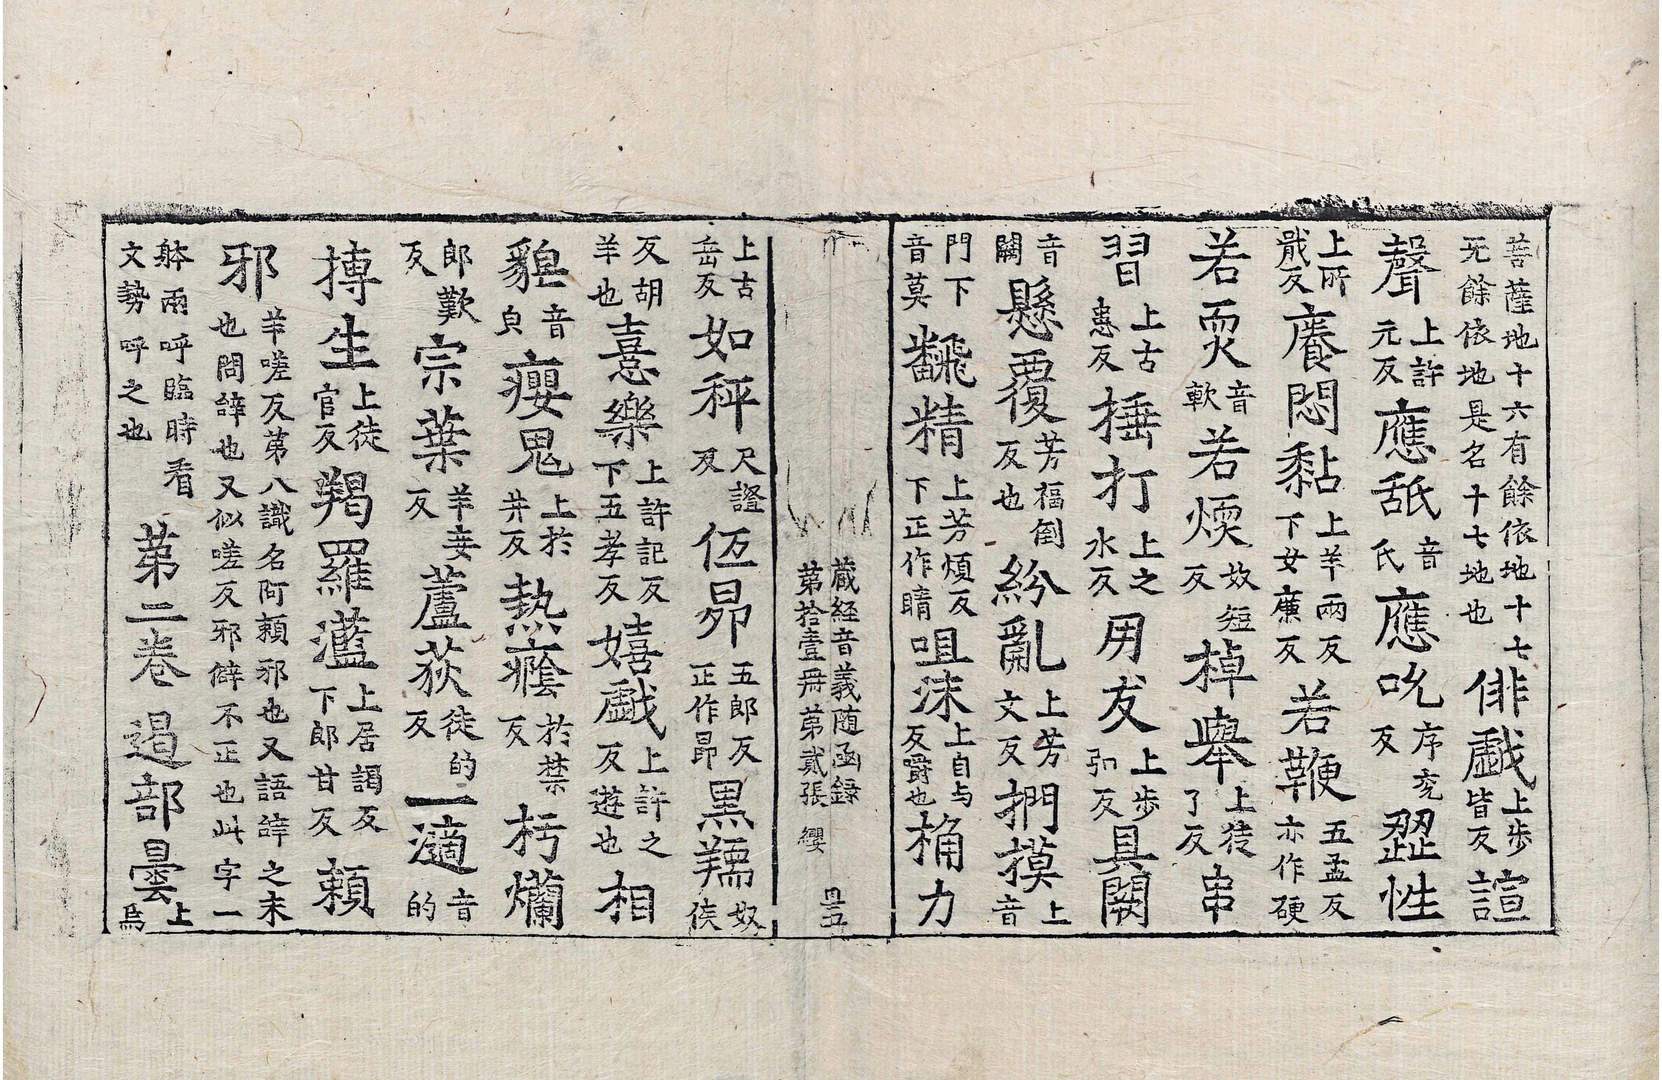 菩薩地十六有餘依地十七无餘依地是名十七地也俳戯上步皆反諠
聲上許元反應舐音氏應吮序兖反澀性
上所戢反癢悶黏上羊兩反下女廉反若鞭五孟反亦作硬
若㷄音軟若煗奴短反掉舉上徒了反串
習上古患反捶打上之水反用友上步㧈反具闕
音闕懸覆芳福反倒也紛亂上芳文反捫摸上音
門下音莫飜精上芳煩反下正作睛咀沫上自与反爵也桷力
藏經音義随函録第拾壹冊第貳張 纓 冊五
上古岳反如秤尺證反仾昴五郎反正作昴黒羺奴侯
反胡羊也憙樂上許記反下五孝反嬉戯上許之反遊也相
貌音皃癭鬼上於井反熱癊於禁反朽爛
郎歎反宗葉羊妾反蘆荻徒的反一滴音的
摶生上徒官反羯羅灆上居謁反下郎甘反頼
邪羊嗟反苐八識名阿頼邪也又語辝之末也問辝也又似嗟反邪僻不正也此字一
躰兩呼臨時看文勢呼之也苐二卷遏部曇上烏